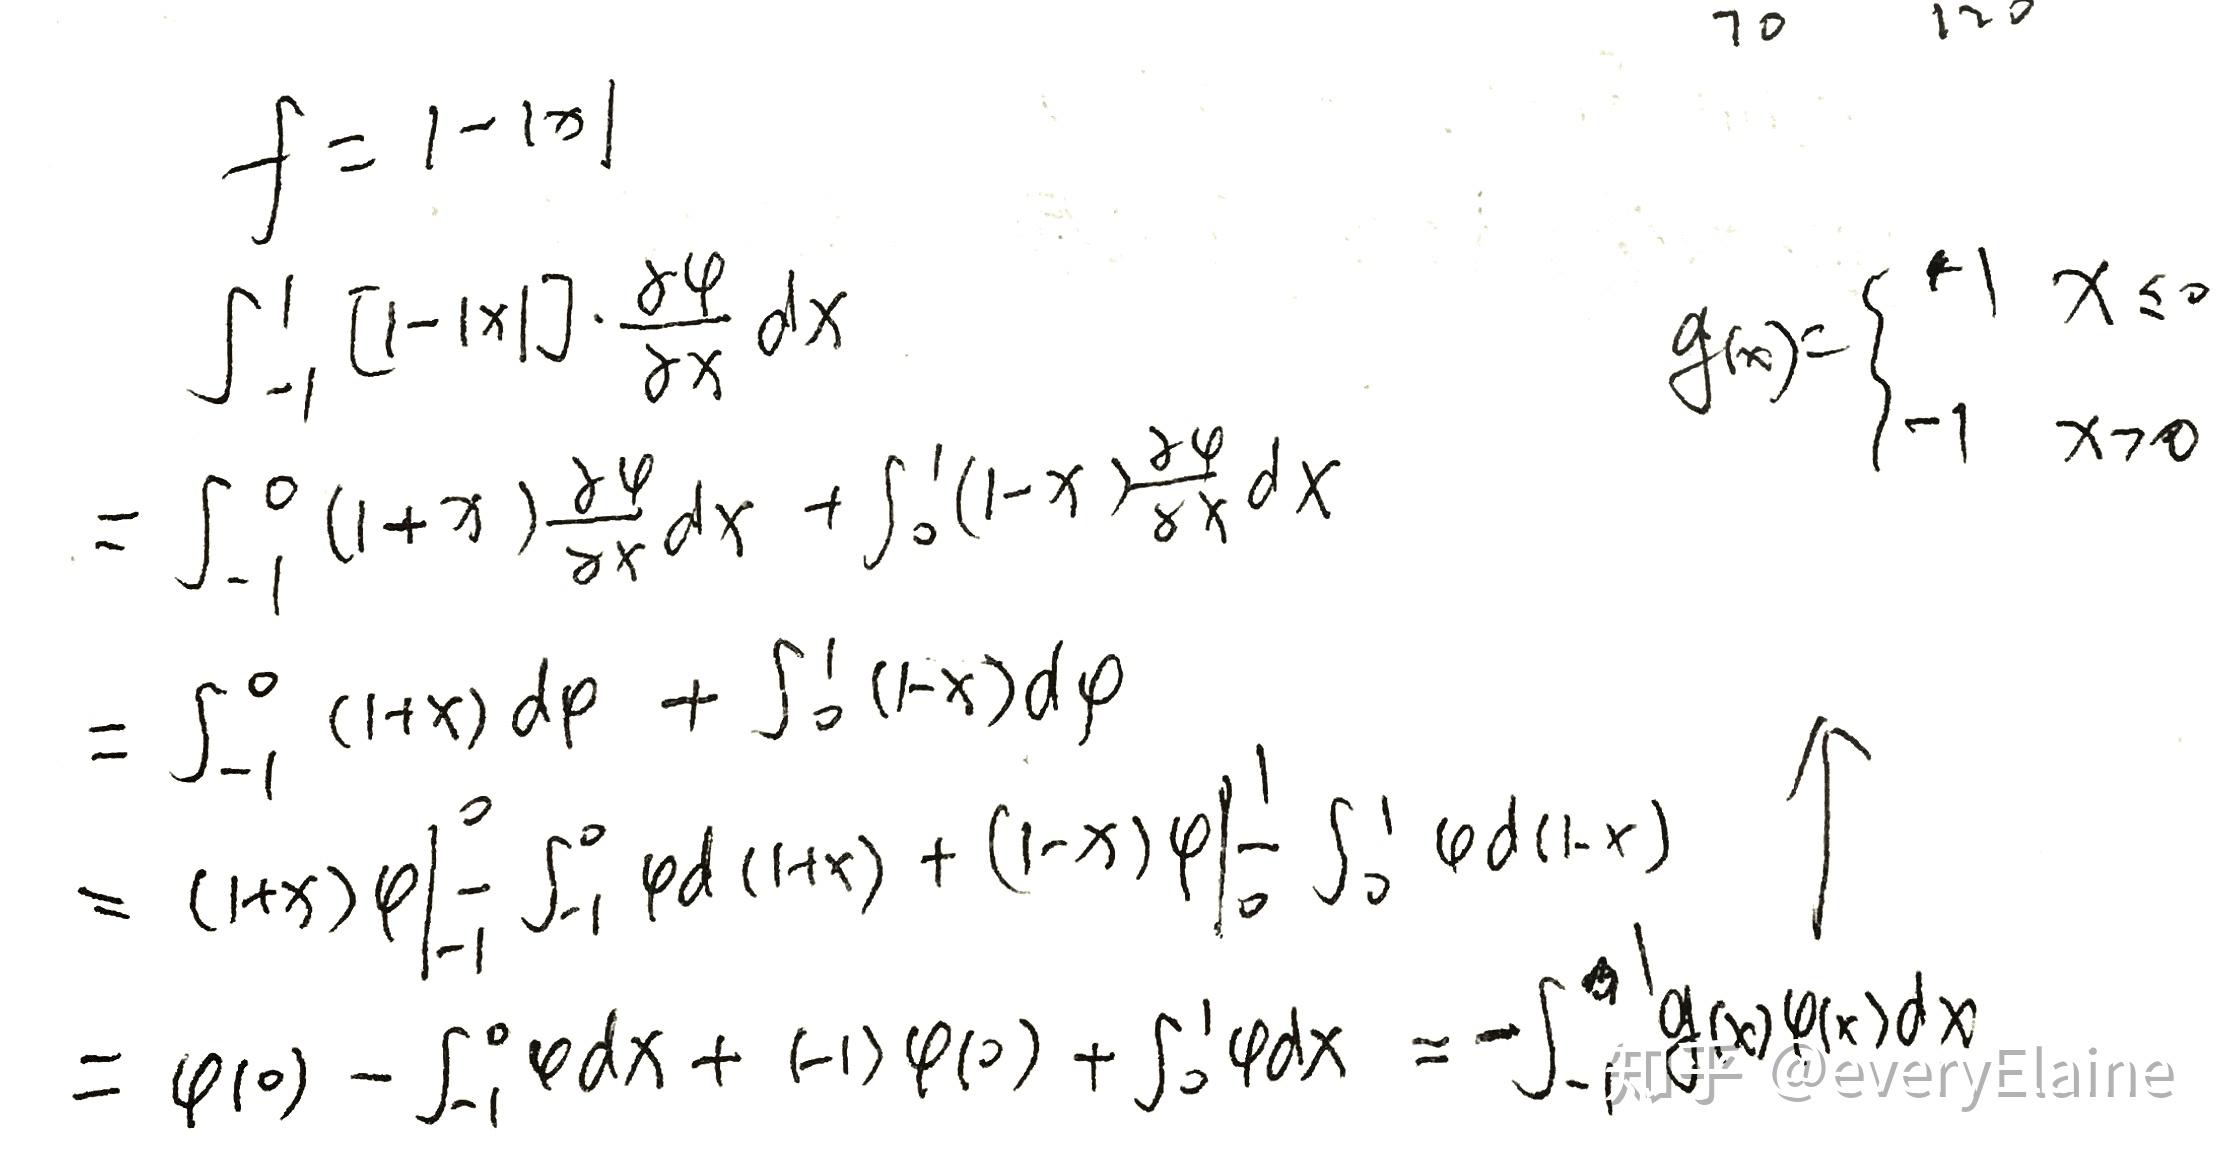 70 120
f = 1 - |x|
∫_{-1}^{1} [1-|x|] · ∂φ/∂x dx
g(x) = { +1 x ≤ 0
-1 x > 0
= ∫_{-1}^{0} (1+x) ∂φ/∂x dx + ∫_{0}^{1} (1-x) ∂φ/∂x dx
= ∫_{-1}^{0} (1+x) dφ + ∫_{0}^{1} (1-x) dφ
= (1+x)φ|_{-1}^{0} - ∫_{-1}^{0} φ d(1+x) + (1-x)φ|_{0}^{1} - ∫_{0}^{1} φ d(1-x)
= φ(0) - ∫_{-1}^{0} φ dx + (-1) φ(0) + ∫_{0}^{1} φ dx = - ∫_{-1}^{1} g(x) φ(x) dx
知乎 @everyElaine